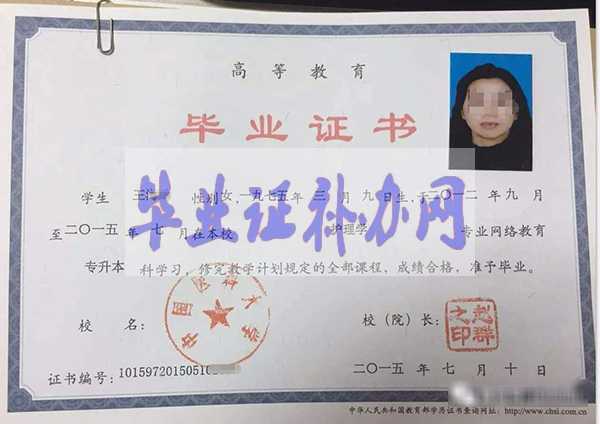 高等教育
毕业证书
学生 王 性别女,一九七五年三月九日生,于二〇一二年九月
毕业证补办网
至二〇一五年七月在本校 护理学 专业网络教育
专升本 科学习,修完教学计划规定的全部课程,成绩合格,准予毕业。
中国医科大学
校 名: 校(院)长: 赵群之印
证书编号:1015972015051 二〇一五年七月十日
中华人民共和国教育部学历证书查询网址:http://www.chsi.com.cn